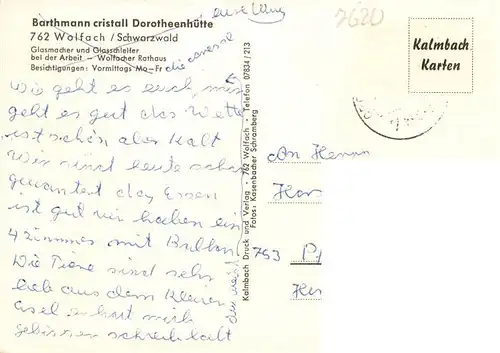 Barthmann cristall Dorotheenhütte
762 Wolfach / Schwarzwald
Glasmacher und Glasschleifer
bei der Arbeit — Wolfacher Rathaus
Besichtigungen: Vormittags Mo—Fr
die adresse
Wie geht es euch, mir
geht es gut das Wette
ist schön aber kalt
Wir sind heute schon
gewantert das Essen
ist gut wir haben ein
4 zimmer mit
Die Tiere sind sehr
lieb aus dem kleinen
esel er hat mich
gebissen schreib halt
Kalmbach Druck und Verlag · 762 Wolfach · Telefon 07834 / 213
Fotos: Kasenbacher Schramberg
7620
Kalmbach
Karten
An Herrn
Hor
753 P